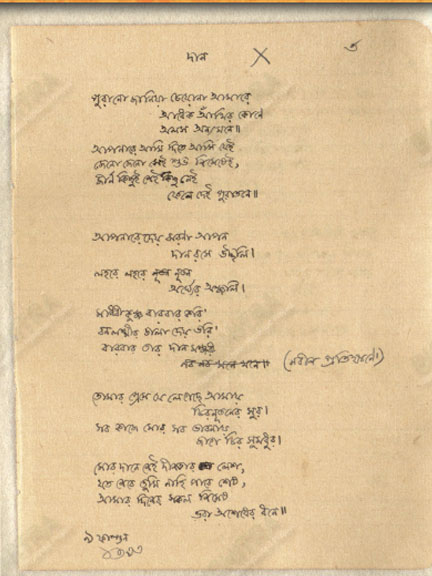 দান
পুরানো জানিয়া চেয়োনা আমারে
আধেক আঁখির কোণে
অলস অন্যমনে॥
আপনারে আমি দিতে আসি যেই
জেনো জেনো সেই শুভ নিমেষেই,
জীর্ণ কিছুই নেই কিছু নেই
ফেলে দেই পুরাতনে॥
আপনারে দেয় ঝরনা আপন
দানরসে উচ্ছলি।
লহরে লহরে নূতন নূতন
অর্ঘ্যের অঞ্জলি।
মাধবীকুঞ্জ বারবার করি'
বনলক্ষ্মীর ডালা দেয় ভরি'
বারবার তার দান মঞ্জরী
তোমার প্রেমে যে লেগেছে আমায়
চিরনূতনের সুর।
সব কাজে মোর সব ভাবনায়
জাগে চির সুমধুর।
মোর দানে নেই দীনতার লেশ,
যত নেবে তুমি নাহি পাবে শেষ,
আমার দিনের সকল নিমেষ
ভরা অশেষের ধনে॥
৯ ফাল্গুন